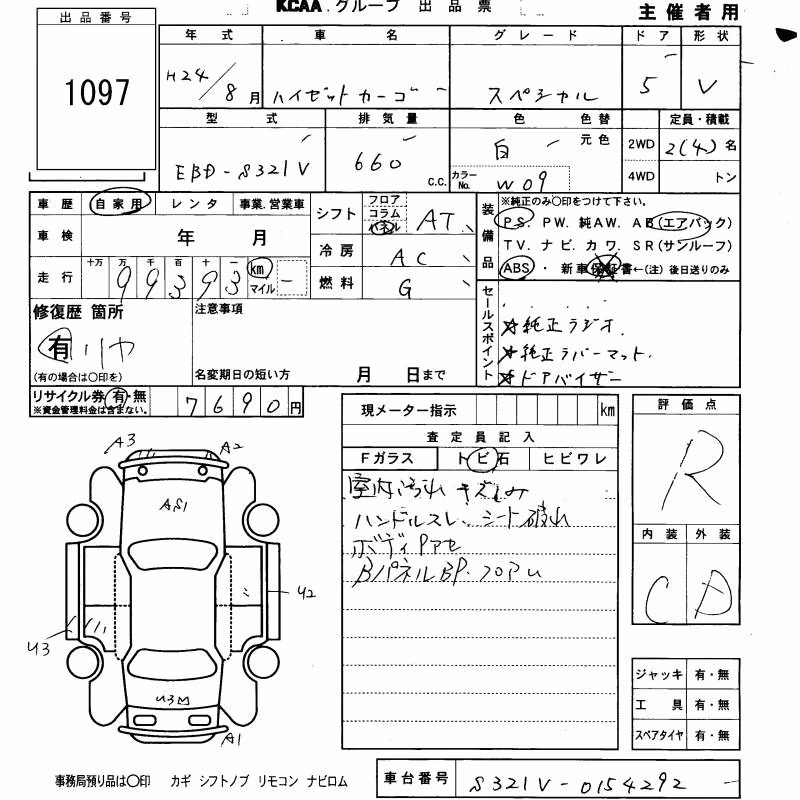 KCAA グループ 出品票
主催者用
出品番号
1097
年式 車名 グレード ドア 形状
H24/8月 ハイゼットカーゴ スペシャル 5 V
型式 排気量 色 色替 定員・積載
元色
EBD-S321V 660 C.C. 白 2WD 2(4)名
カラーNo. W09 4WD トン
車歴 自家用 レンタ 事業.営業車
車検 年 月
走行 十万 万 千 百 十 一
99393 km マイル
シフト フロア コラム パネル AT
冷房 AC
燃料 G
装備品
※純正のみ〇印をつけて下さい。
PS. PW. 純AW. AB(エアバック)
TV. ナビ. カワ. SR(サンルーフ)
ABS ・ 新車保証書←(注) 後日送りのみ
セールスポイント
☆純正ラジオ.
☆純正ラバーマット.
☆ドアバイザー
修復歴 箇所
有 リヤ
(有の場合は〇印を)
注意事項
名変期日の短い方 月 日まで
リサイクル券 有・無
※資金管理料金は含まない。
7690円
現メーター指示 km
査定員記入
Fガラス トビ石 ヒビワレ
室内汚れ キズしみ
ハンドルスレ、シート破れ
ボディPアセ
BパネルBP.フロアU
評価点
R
内装 外装
C D
A3 A2
AS1
U2
U3
U3M
A1
ジャッキ 有・無
工具 有・無
スペアタイヤ 有・無
事務局預り品は〇印 カギ シフトノブ リモコン ナビロム
車台番号 S321V-0154292